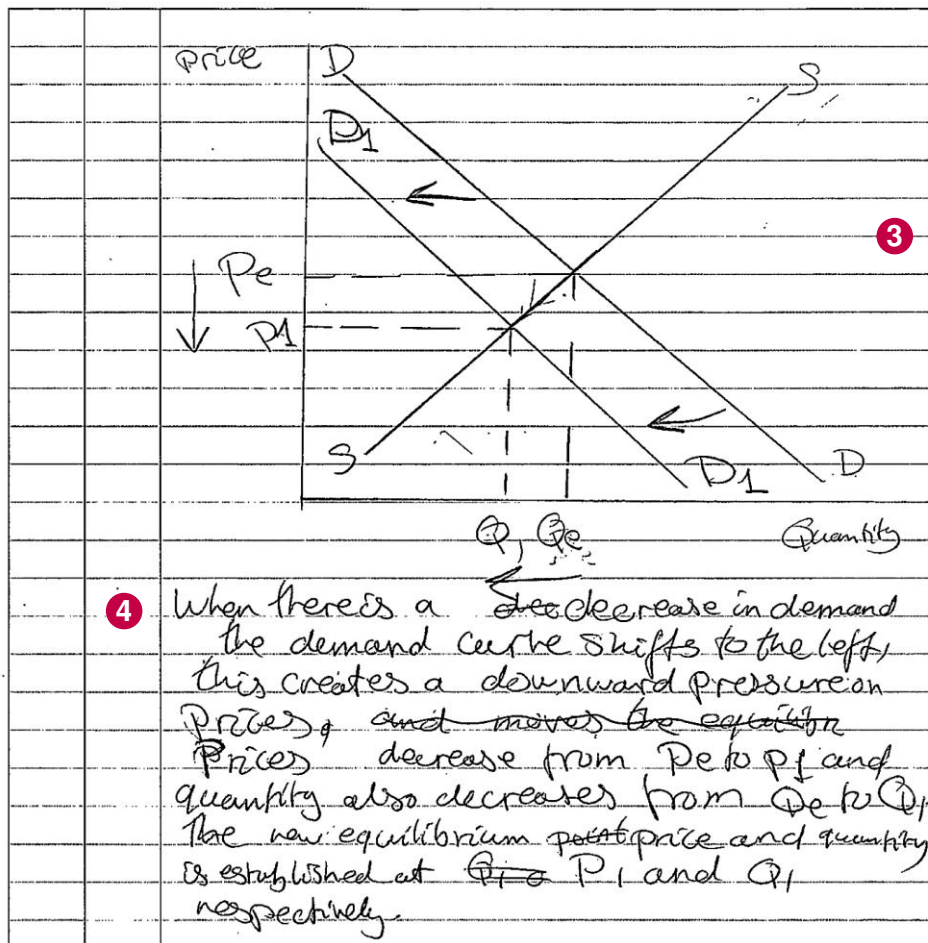 price D S
D1
3
Pe
P1
S D1 D
Q1 Qe Quantity
4 When there is a dec decrease in demand
the demand curve shifts to the left,
this creates a downward pressure on
prices, and moves the equilibr
Prices decrease from Pe to P1 and
quantity also decreases from Qe to Q1
The new equilibrium point price and quantity
is established at Q1 P1 and Q1
respectively.